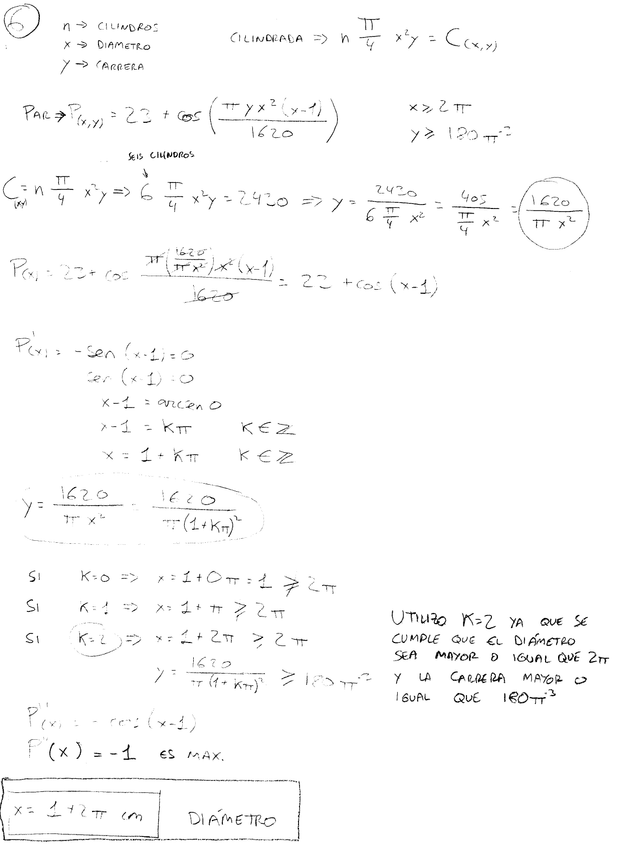 6
n → CILINDROS
x → DIAMETRO
y → CARRERA
CILINDRADA ⇒ n π/4 x²y = C(x,y)
PAR ⇒ P(x,y) = 23 + cos (π y x² (x-1) / 1620)
x ≥ 2π
y ≥ 180π⁻³
SEIS CILINDROS
C(x,y) = n π/4 x²y ⇒ 6 π/4 x²y = 2430 ⇒ y = 2430 / (6 π/4 x²) = 405 / (π/4 x²) = 1620 / (π x²)
P(x) = 23 + cos (π (1620 / π x²) x² (x-1) / 1620) = 23 + cos (x-1)
P'(x) = -sen (x-1) = 0
sen (x-1) = 0
x-1 = arcsen 0
x-1 = kπ K ∈ Z
x = 1 + Kπ K ∈ Z
y = 1620 / (π x²) = 1620 / (π (1+Kπ)²)
SI K=0 ⇒ x = 1+0π = 1 ≱ 2π
SI K=1 ⇒ x = 1+π ≱ 2π
SI K=2 ⇒ x = 1+2π ≥ 2π
y = 1620 / (π (1+Kπ)²) ≥ 180π⁻³
UTILIZO K=2 YA QUE SE
CUMPLE QUE EL DIÁMETRO
SEA MAYOR O IGUAL QUE 2π
Y LA CARRERA MAYOR O
IGUAL QUE 180π⁻³
P''(x) = -cos (x-1)
P''(x) = -1 ES MAX.
x = 1+2π cm DIÁMETRO